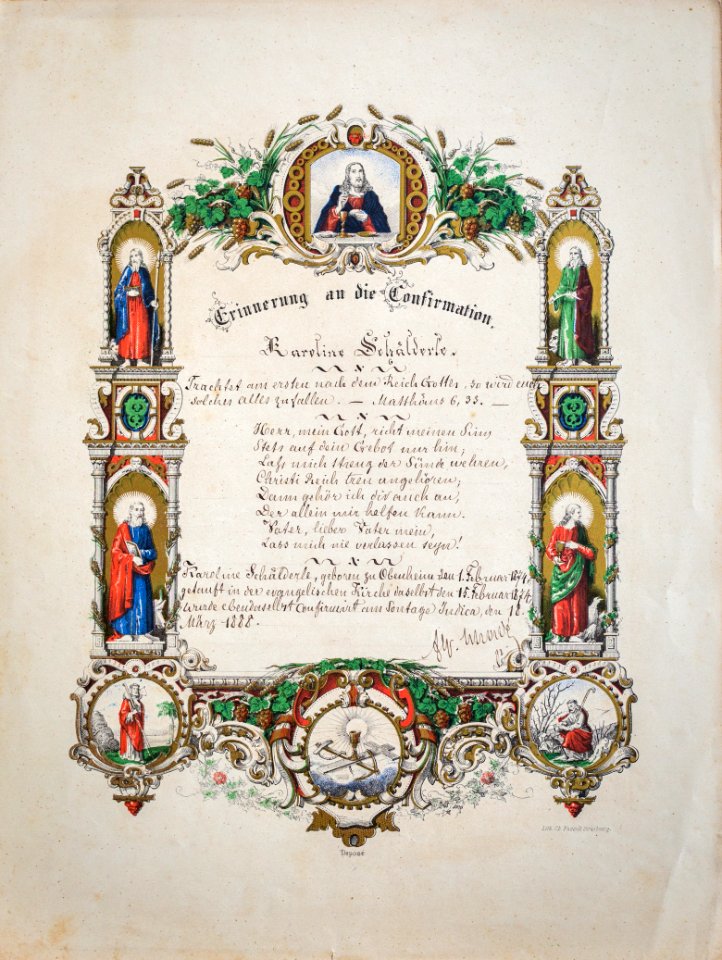 Erinnerung an die Confirmation.
Karoline Schälderle.
Trachtet am ersten nach dem Reich Gottes, so wird euch
solches alles zufallen. — Matthäus 6, 33. —
Herr, mein Gott, richt meinen Sinn
Stets auf dein Gebot nur hin;
Lass mich streng der Sünde wehren,
Christi Reich treu angehören;
Dann gehör ich dir auch an,
Der allein mir helfen kann.
Vater, lieber Vater mein,
Lass mich nie verlassen seyn!
Karoline Schälderle, geboren zu Obenheim den 1. Februar 1874,
getauft in der evangelischen Kirche daselbst den 15. Februar 1874,
wurde ebendaselbst Confirmirt am Sontage Judica, den 18.
März 1888.
Lith. Ch. Strasbourg.
Deposé